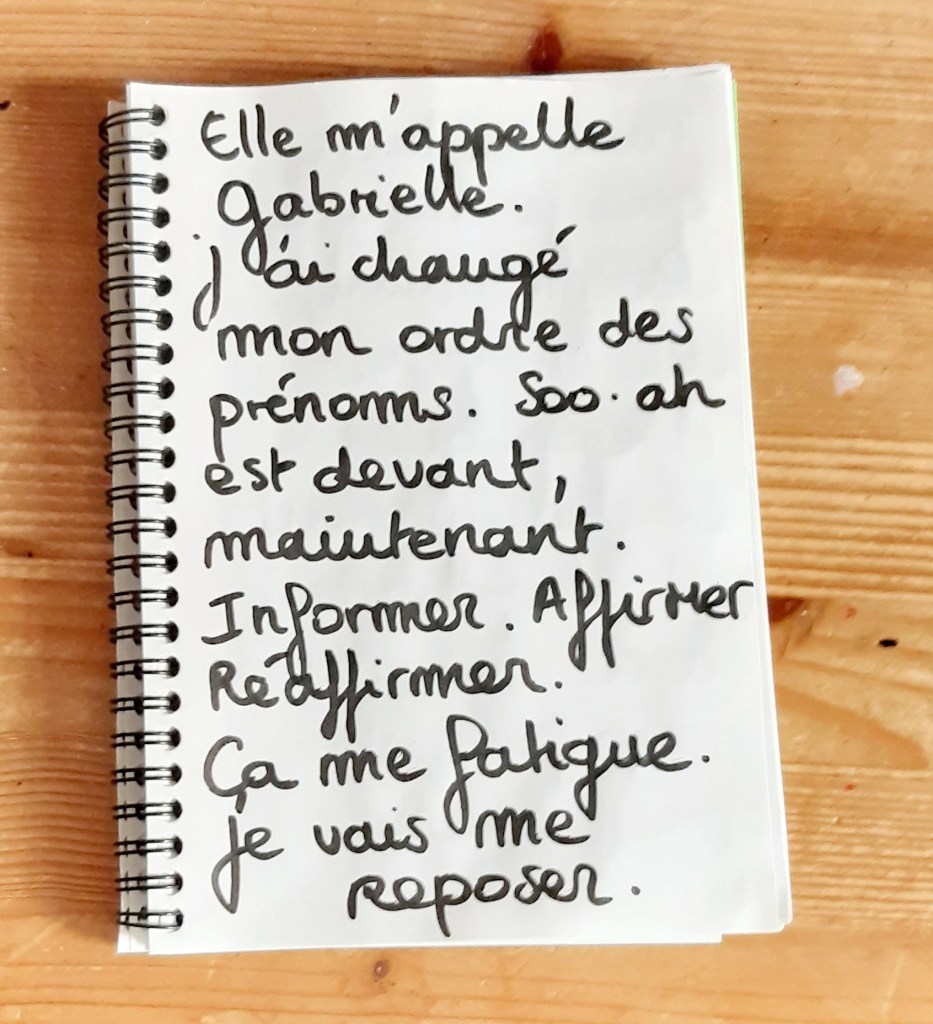 Elle m'appelle
Gabrielle.
j'ai changé
mon ordre des
prénoms. Soo.ah
est devant,
maintenant.
Informer. Affirmer
Réaffirmer.
Ça me fatigue.
je vais me
reposer.